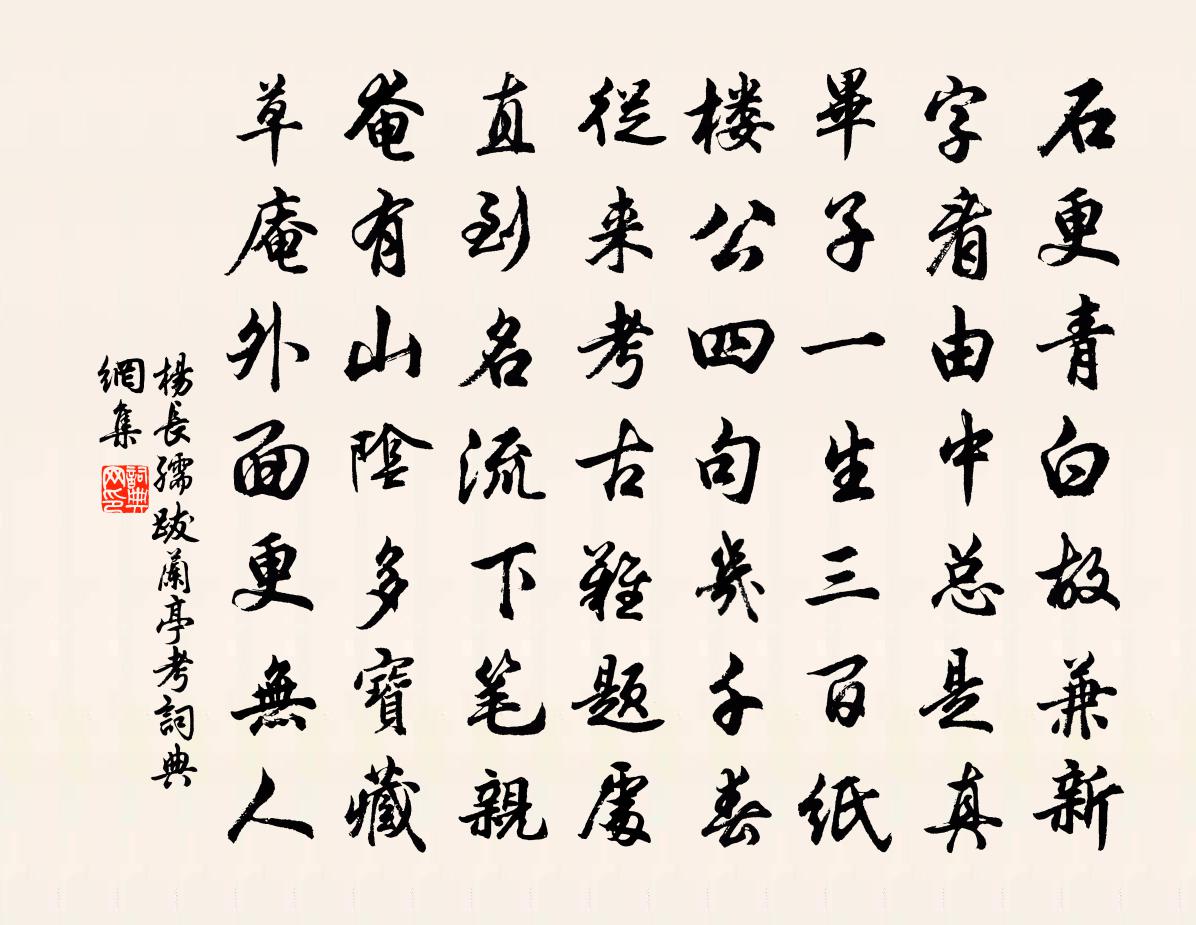 石更青白故兼新
字看由中总是真
畢子一生三百纸
楼公四句幾千春
從来考古難题處
直到名流下笔親
奄有山陰多寶藏
草庵外面更無人
楊長孺跋蘭亭考詞典
網集
詞典
网印